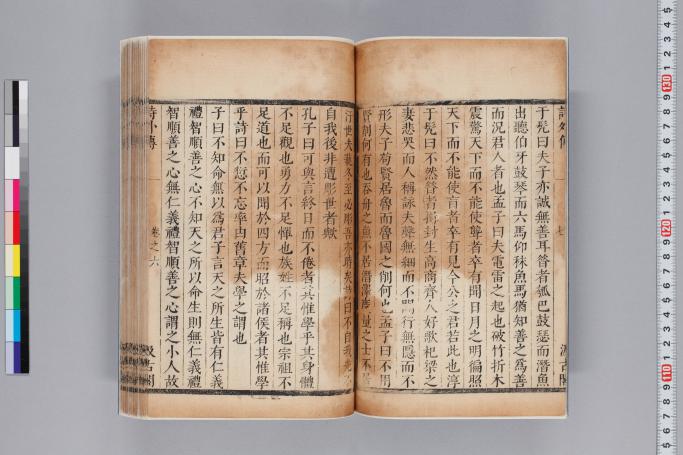 于髡曰夫子亦誠無善耳昔者瓠巴鼓瑟而潛魚
出聽伯牙鼓琴而六馬仰秣魚馬猶知善之爲善
而況君人者也孟子曰夫電雷之起也破竹折木
震驚天下而不能使聾者卒有聞日月之明徧照
天下而不能使盲者卒有見今公之君若此也淳
于髡曰不然昔者揖封生高商齊人好歌杞梁之
妻悲哭而人稱詠夫聲無細而不聞行無隱而不
形夫子苟賢居魯而魯國之削何也孟子曰不用
賢削何有也吞舟之魚不居潛澤度量之士不居
汙世夫蓺冬至必彫吾亦時矣詩曰不自我先不
自我後非遭彫世者歟
孔子曰可與言終日而不倦者其惟學乎其身體
不足觀也勇力不足憚也族姓不足稱也宗祖不
足道也而可以聞於四方而昭於諸侯者其惟學
乎詩曰不愆不忘率由舊章夫學之謂也
子曰不知命無以爲君子言天之所生皆有仁義
禮智順善之心不知天之所以命生則無仁義禮
智順善之心無仁義禮智順善之心謂之小人故
詩外傳 卷之六 汲古閣